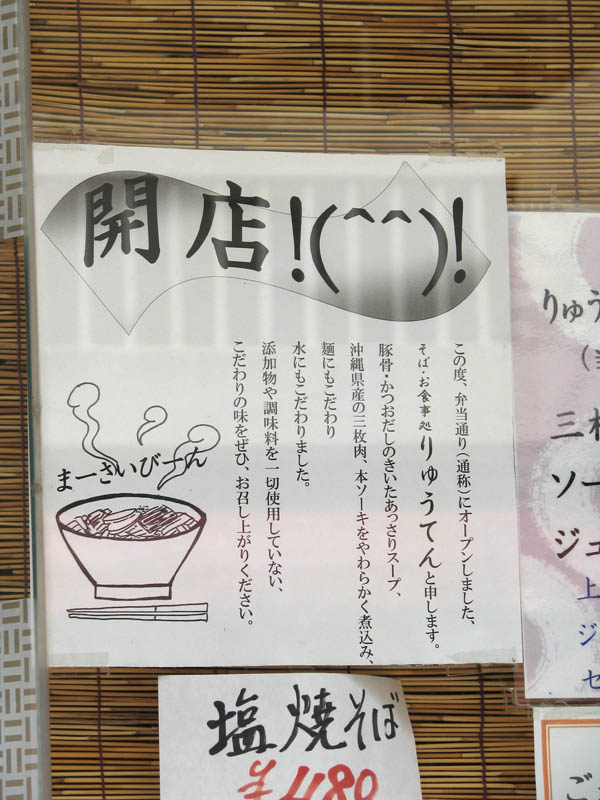 開店!(^^)!
この度、弁当通り(通称)にオープンしました、
そば・お食事処りゅうてんと申します。
豚骨・かつおだしのきいたあっさりスープ、
沖縄県産の三枚肉、本ソーキをやわらかく煮込み、
麺にもこだわり
水にもこだわりました。
添加物や調味料を一切使用していない、
こだわりの味をぜひ、お召し上がりください。
まーさいびーん
塩焼そば
¥480
りゅう
三枚
ソー
ジュ
上
ジ
セ
ご